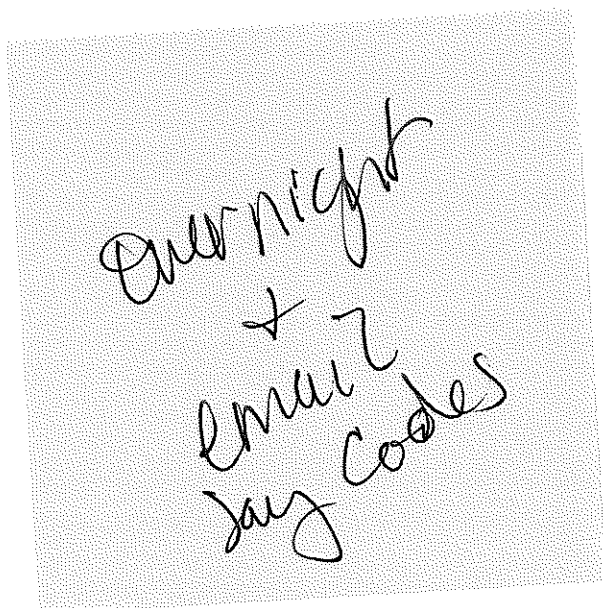 Overnight
+
email
Jay Codes